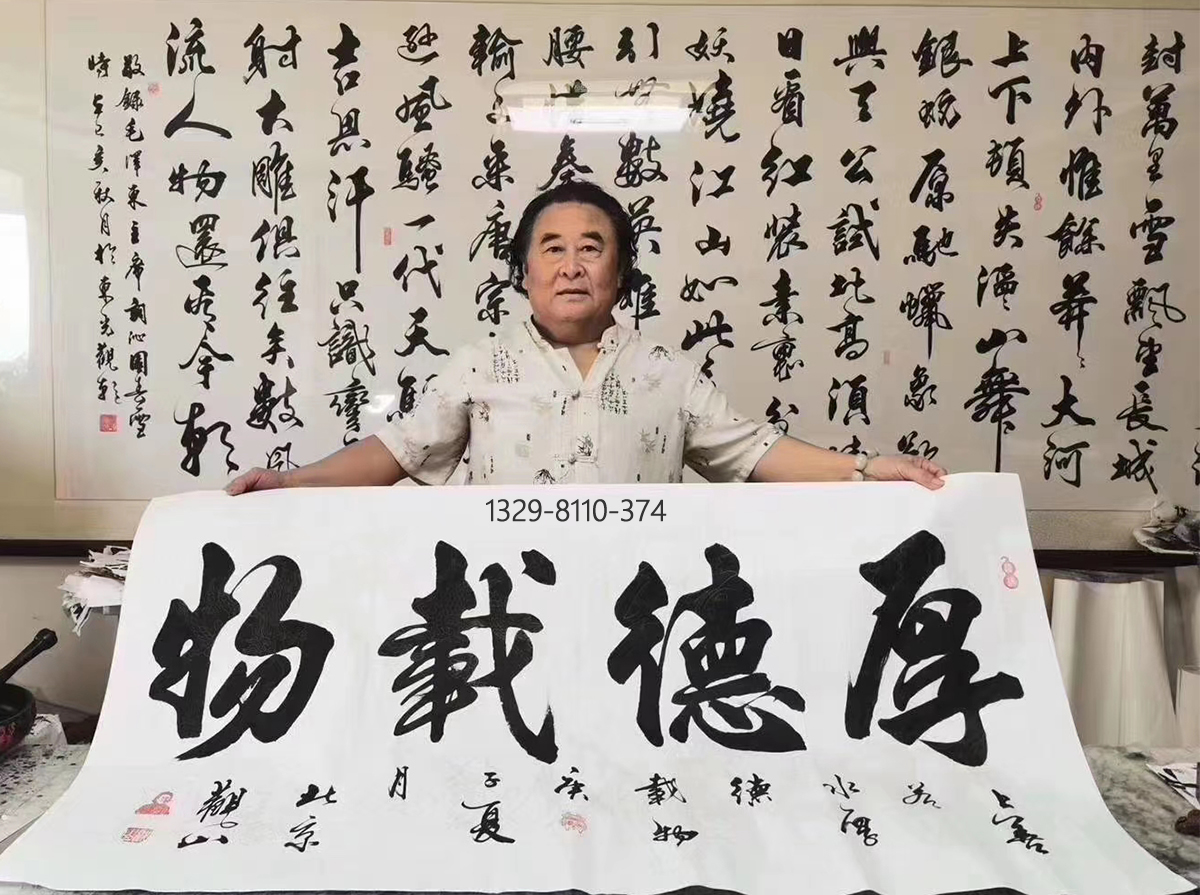 封萬里雪飄望長城
内外惟餘莽々大河
上下頓失滔々山舞
銀蛇原馳蠟象欲
與天公試比高須晴
日看紅裝素裹分
妖嬈江山如此多
引無數英雄
腰惜秦
輸文采唐宗
遜風騷一代天驕
吉思汗只識彎
射大雕俱往矣數風
流人物還看今朝
敬錄毛澤東主席詞沁園春雪
時在己亥秋月於東光觀
1329-8110-374
厚德載物
上善若水厚德載物庚子夏月北京觀山